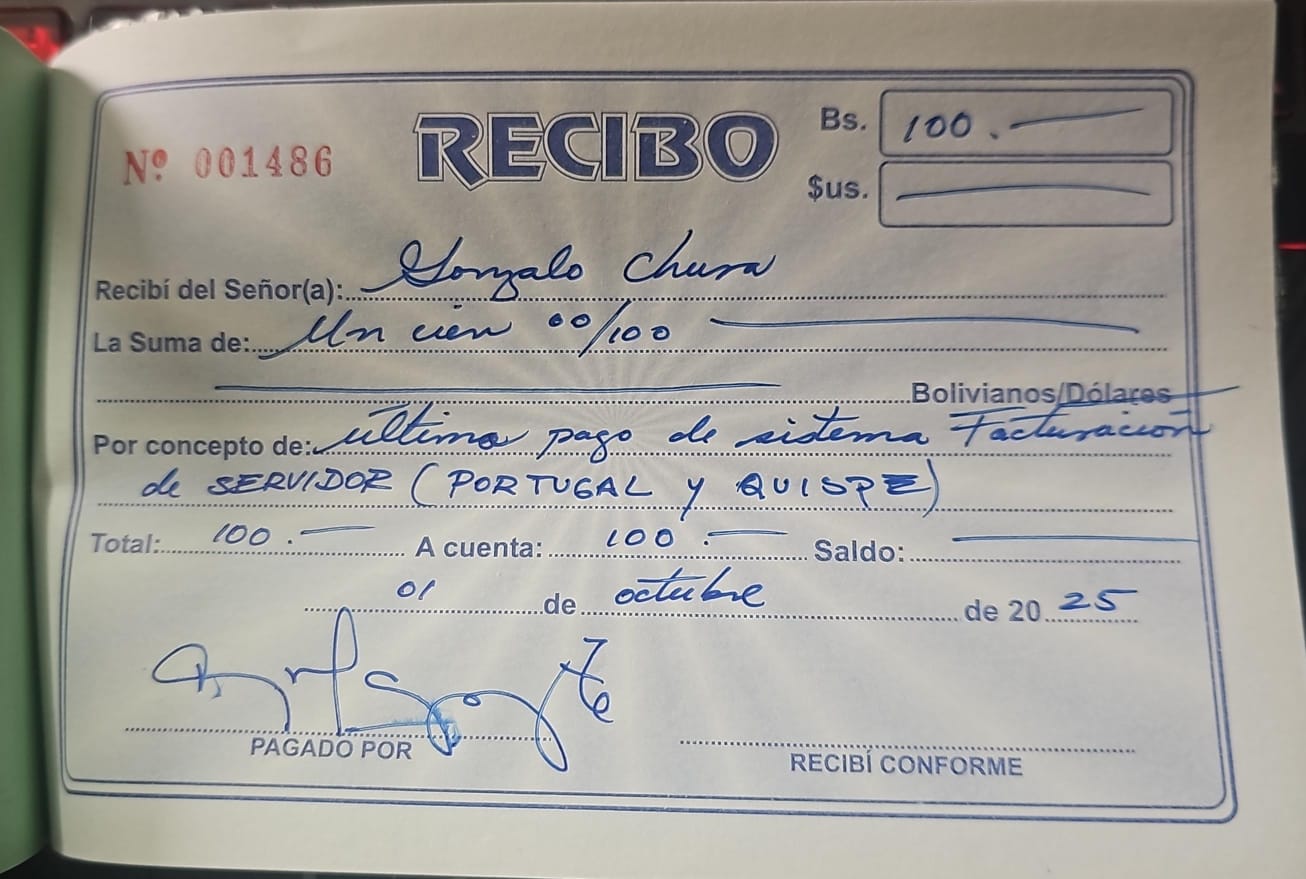 Nº 001486
RECIBO
Bs. 100.
$us.
Recibí del Señor(a): Gonzalo Chura
La Suma de: Un cien 00/100
Bolivianos/Dólares
Por concepto de: ultimo pago de sistema Facturación
de SERVIDOR (PORTUGAL y QUISPE)
Total: 100. A cuenta: 100. Saldo:
01 de octubre de 20 25
PAGADO POR
RECIBÍ CONFORME